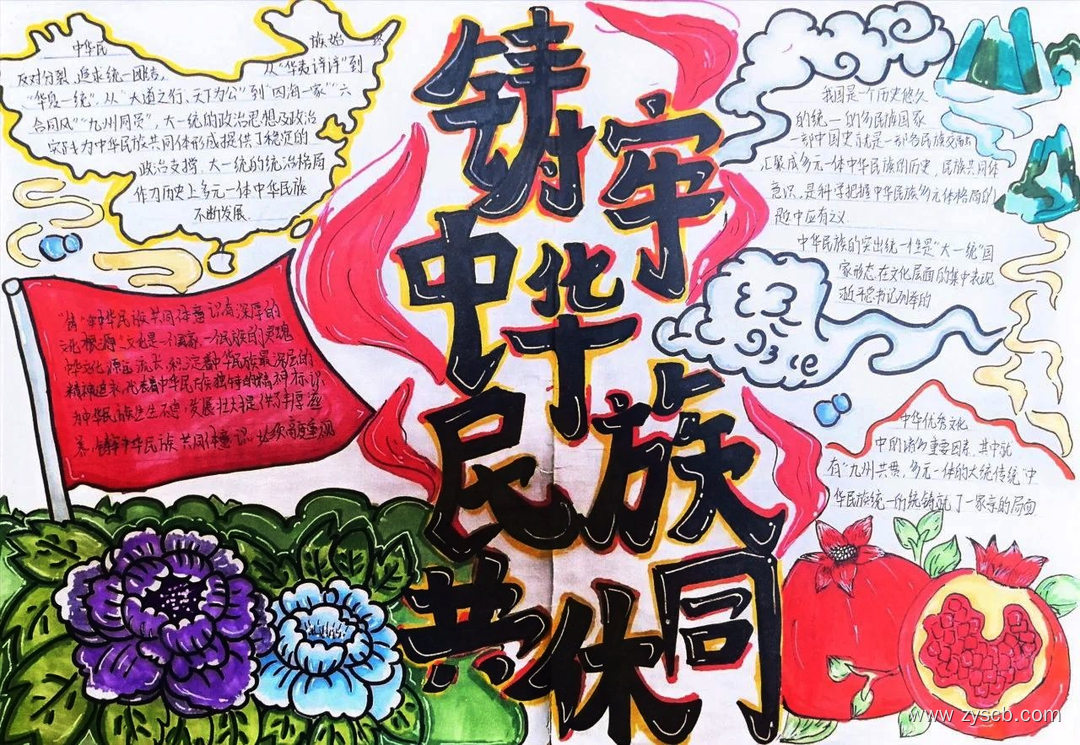 铸牢
中华
民族
共同体
中华民 族始终
反对分裂、追求统一国家,从“华夷诗诗”到
“华夷一统”从“大道之行,天下为公”到“四海一家”“六
合同风”“九州同贯”,大一统的政治思想及政治
实践为中华民族共同体形成提供了稳定的
政治支撑,大一统的统治格局
作为历史上多元一体中华民族
不断发展.
“铸牢中华民族共同体意识有深厚的
文化根源”文化是一个国家、一个民族的灵魂
中华文化源远流长,积淀着中华民族最深层的
精神追求,代表着中华民族独特的精神标识
为中华民族生生不息,发展壮大提供了丰厚滋
养,铸牢中华民族共同体意识,必须高度重视
我国是一个历史悠久
的统一的多民族国家
一部中国史,就是一部各民族交融
汇聚成多元一体中华民族的历史,民族共同体
意识,是科学把握中华民族多元一体格局的
题中应有之义
中华民族的突出统一性是“大一统”国
家形态,在文化层面的集中表现
近平总书记列举的
中华优秀文化
中的诸多重要因素,其中就
有“九州共贯,多元一体的大统传统”中
华民族统一的统铸就了一家亲的局面
www.zyscb.com